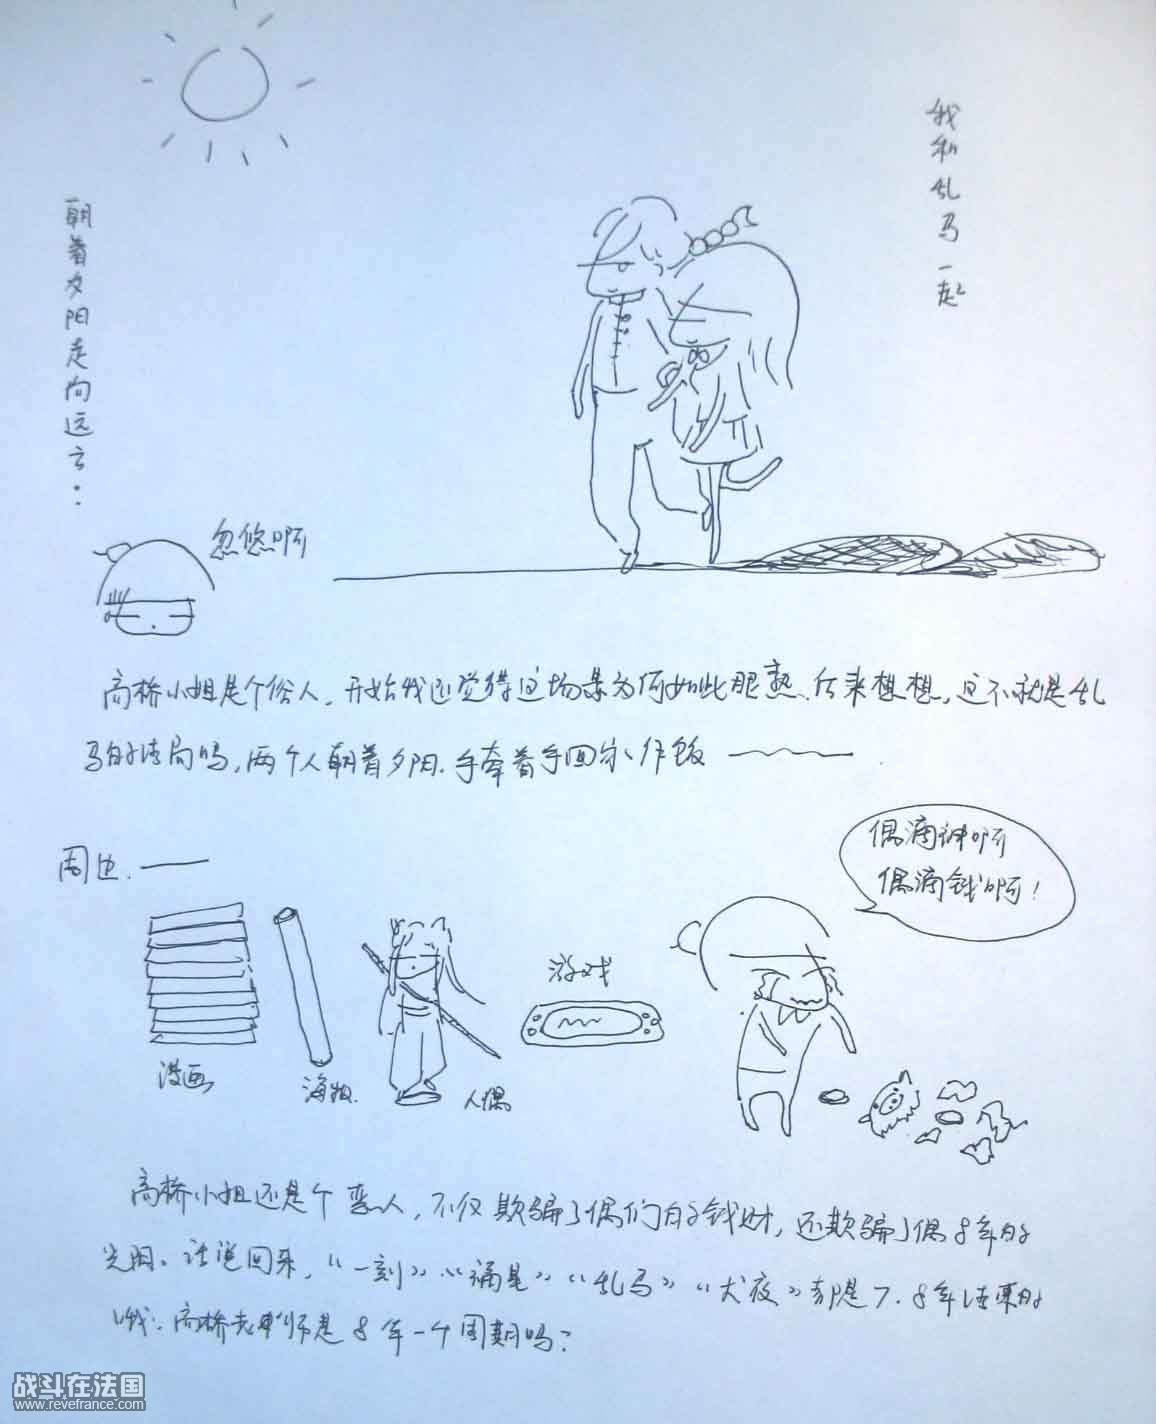 我和乱马一起
朝着夕阳走向远方.
忽悠啊
高桥小姐是个俗人,开始我还觉得这场景为何如此眼熟.后来想想,这不就是乱
马的结局吗,两个人朝着夕阳.手牵着手回家作饭
周边.
偶滴神啊
偶滴钱啊!
游戏
漫画
海报.
人偶
高桥小姐还是个 蛮人,不仅欺骗了偶们的钱财,还欺骗了偶8年的
光阴。话说回来,“一刻”“福星”“乱马”“犬夜”都是7.8年结束的
哦.高桥老师是8年一个周期吗?
战斗在法国
www.revefrance.com